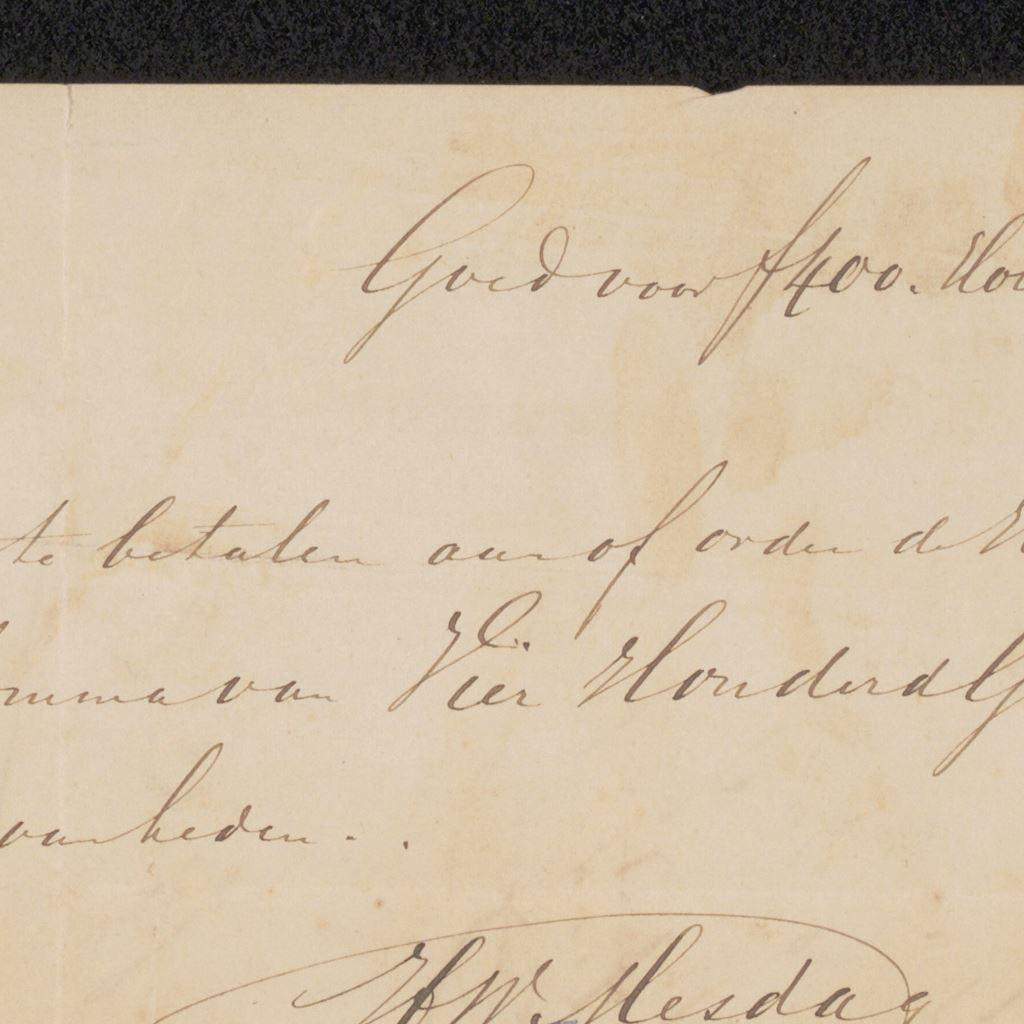 Goed voor f400. Hon
te betalen aan of order de H
omma van Vier Honderd G
van heden.
HW. Mesdag